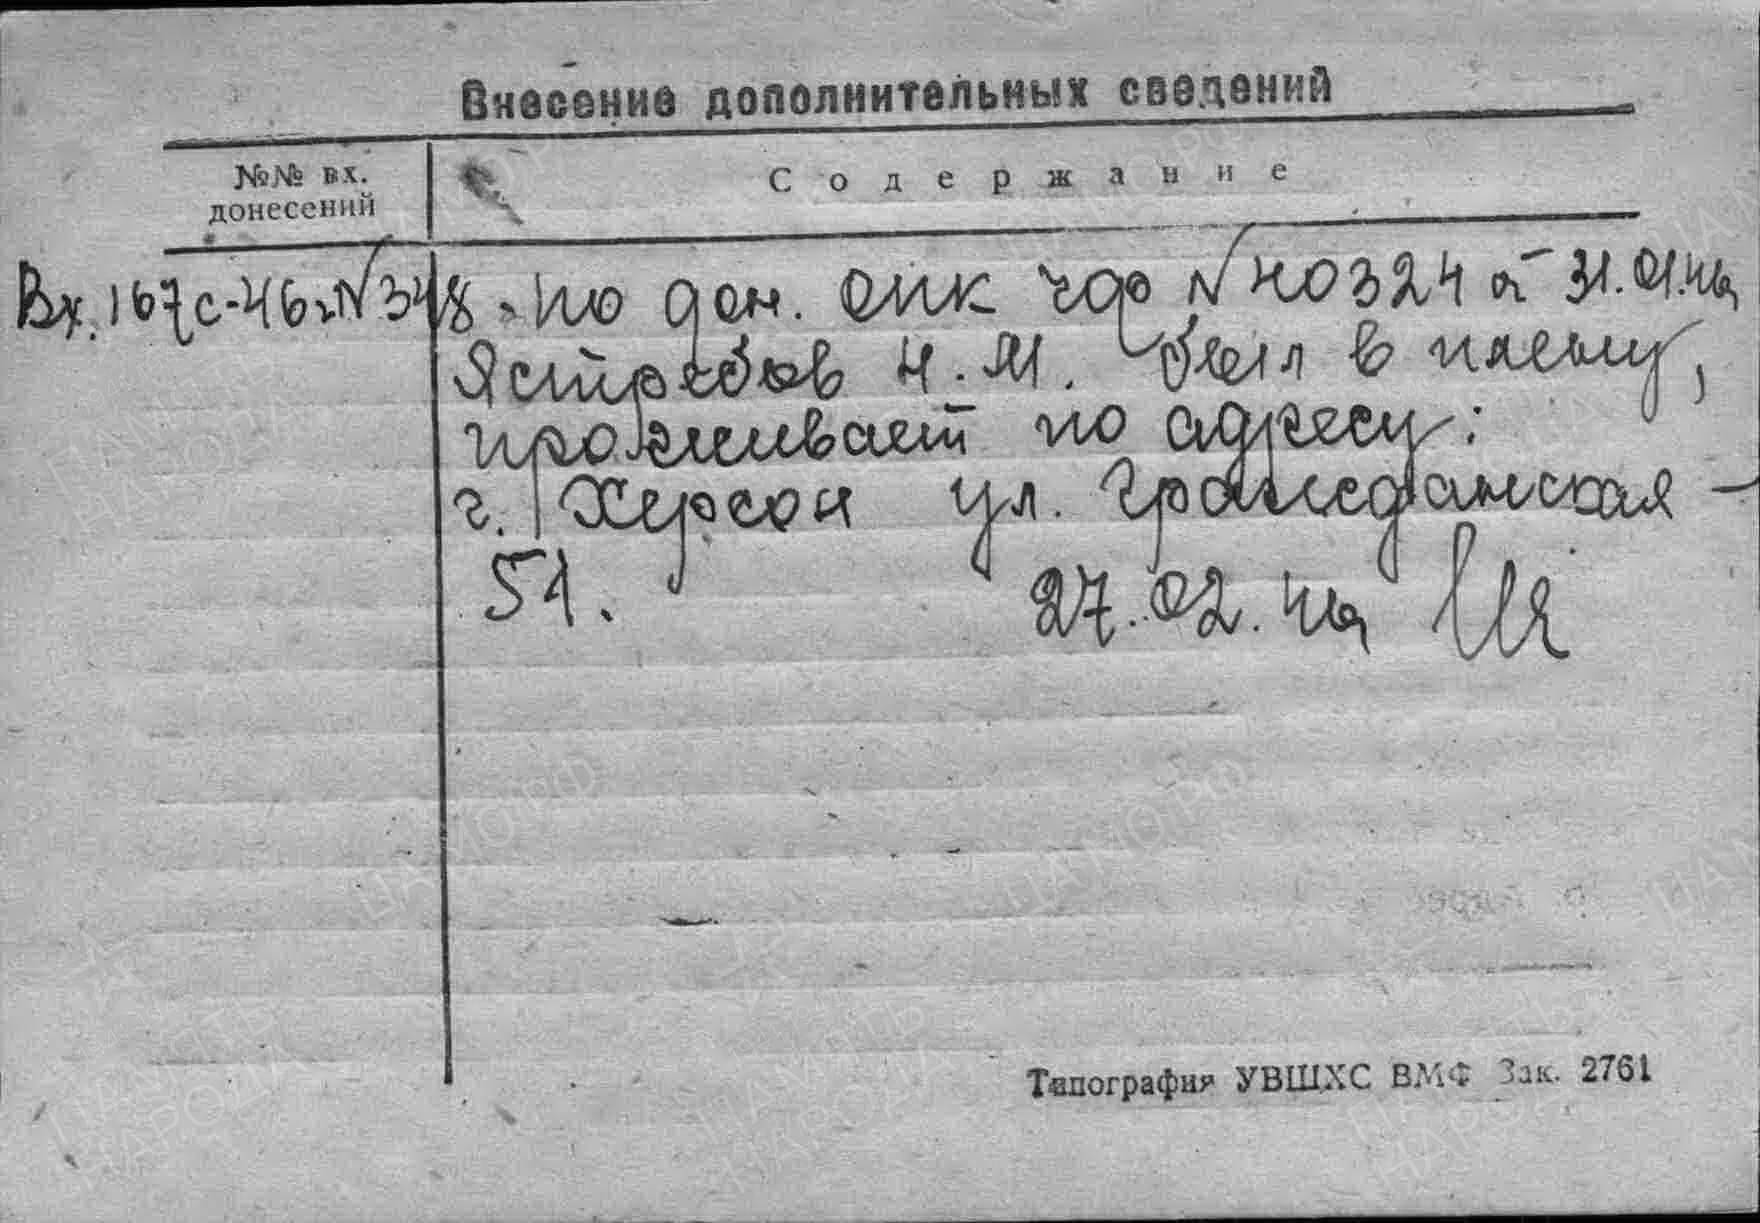 Внесение дополнительных сведений
№№ вх. донесений
Содержание
Вх. 167с-46г. №348. по дон. ОПК ЧФ №40324 от 31.01.46
Ястребов Н.М. был в плену,
проживает по адресу:
г. Херсон ул. Гражданская -
51. 27.02.46
Типография УВШХС ВМФ Зак. 2761
ПАМЯТЬ НАРОДА
ЦАМО.РФ